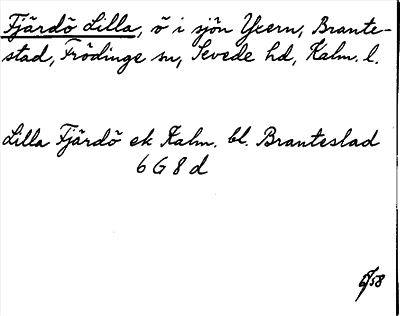 Fjärdö Lilla, ö i sjön Ycern, Brante-
stad, Frödinge sn, Sevede hd, Kalm. l.
Lilla Fjärdö ek Kalm. bl. Brantestad
6 G 8 d